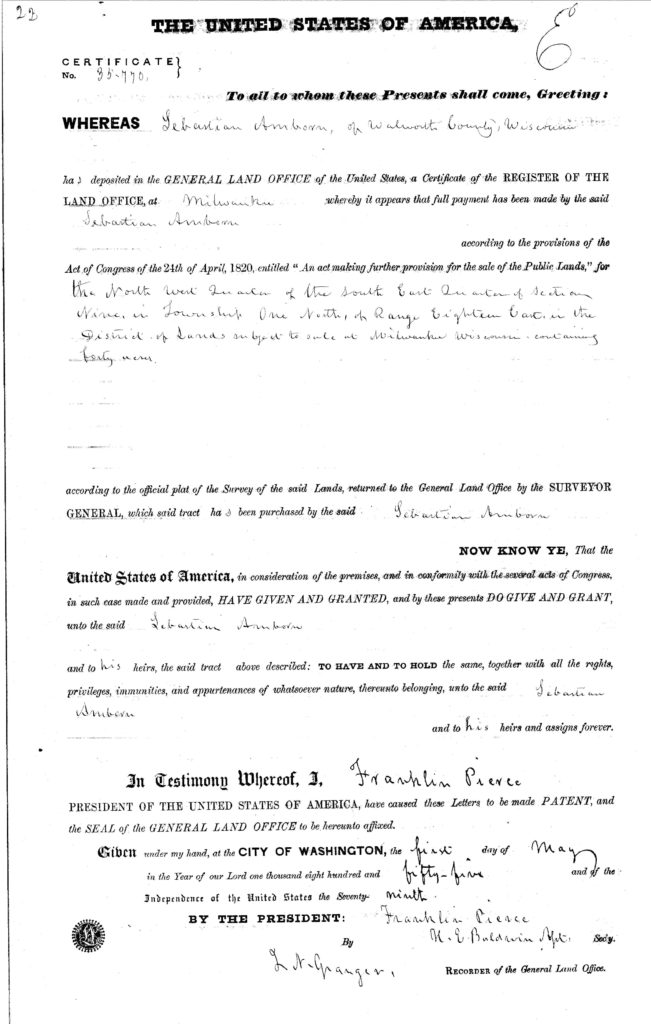 22
THE UNITED STATES OF AMERICA,
CERTIFICATE
No. 35.770.
To all to whom these Presents shall come, Greeting:
WHEREAS Sebastian Amborn, of Walworth County, Wisconsin
has deposited in the GENERAL LAND OFFICE of the United States, a Certificate of the REGISTER OF THE
LAND OFFICE, at Milwaukee whereby it appears that full payment has been made by the said
Sebastian Amborn
according to the provisions of the
Act of Congress of the 24th of April, 1820, entitled "An act making further provision for the sale of the Public Lands," for
the North West Quarter of the South East Quarter of Section
Nine, in Township One North, of Range Eighteen East, in the
District of Lands subject to sale at Milwaukee Wisconsin containing
forty acres
according to the official plat of the Survey of the said Lands, returned to the General Land Office by the SURVEYOR
GENERAL, which said tract has been purchased by the said Sebastian Amborn
NOW KNOW YE, That the
United States of America, in consideration of the premises, and in conformity with the several acts of Congress,
in such case made and provided, HAVE GIVEN AND GRANTED, and by these presents DO GIVE AND GRANT,
unto the said Sebastian Amborn
and to his heirs, the said tract above described: TO HAVE AND TO HOLD the same, together with all the rights,
privileges, immunities, and appurtenances of whatsoever nature, thereunto belonging, unto the said Sebastian
Amborn
and to his heirs and assigns forever.
In Testimony Whereof, I, Franklin Pierce
PRESIDENT OF THE UNITED STATES OF AMERICA, have caused these Letters to be made PATENT, and
the SEAL of the GENERAL LAND OFFICE to be hereunto affixed.
Given under my hand, at the CITY OF WASHINGTON, the first day of May
in the Year of our Lord one thousand eight hundred and fifty-five and of the
Independence of the United States the Seventy-ninth.
BY THE PRESIDENT: Franklin Pierce
By N. E. Baldwin Sec'y.
J. N. Granger, RECORDER of the General Land Office.